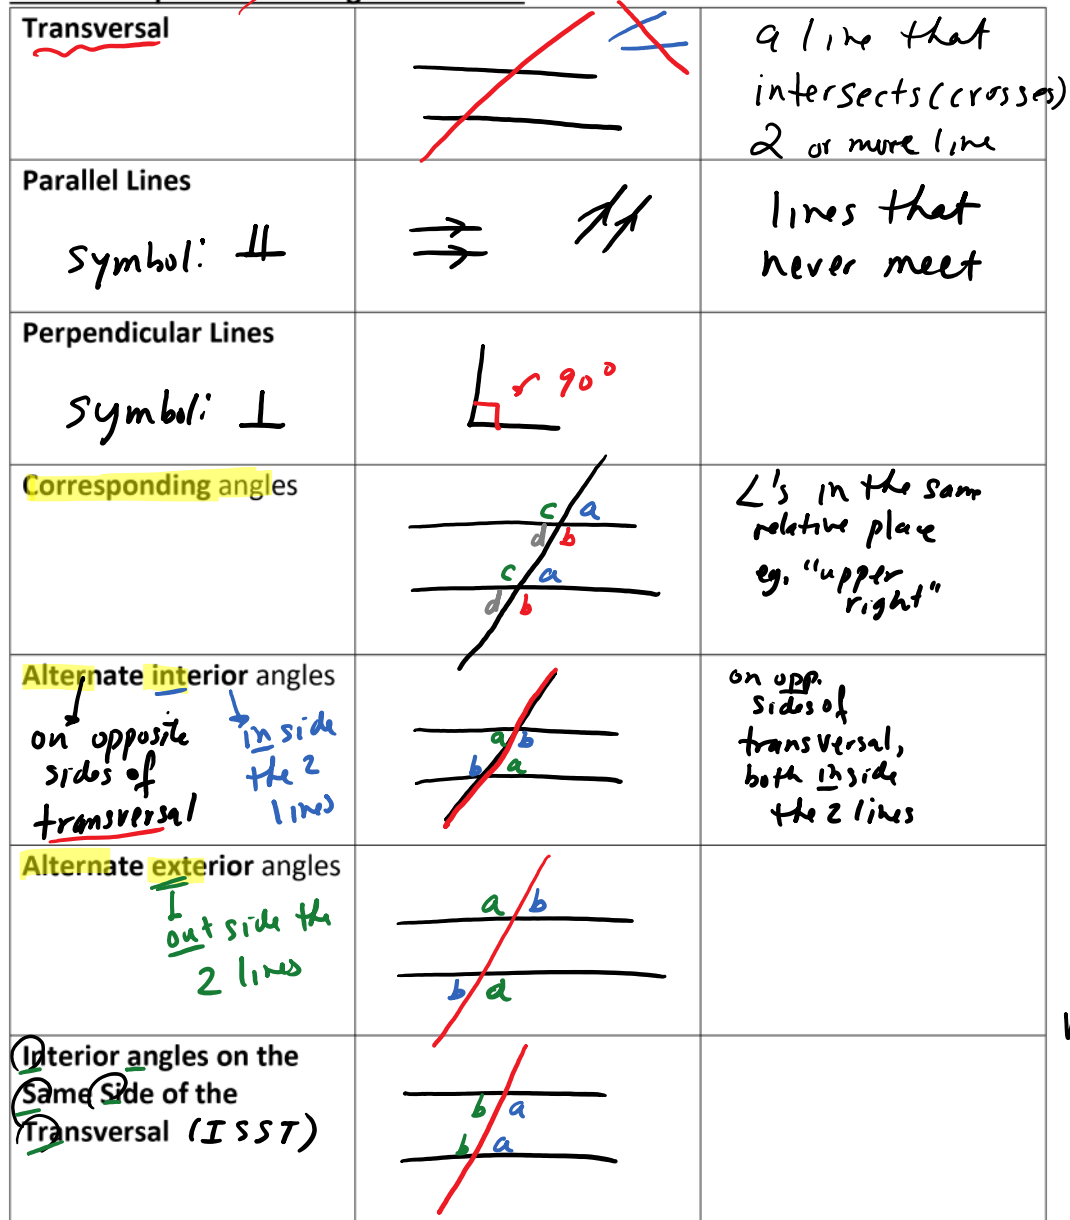 Transversal
a line that
intersects (crosses)
2 or more line
Parallel Lines
symbol: ⫫
lines that
never meet
Perpendicular Lines
symbol: ⊥
90°
Corresponding angles
c a
d b
c a
d b
∠'s in the same
relative place
eg. "upper
right"
Alternate interior angles
on opposite
sides of
transversal
in side
the 2
lines
a b
b a
on opp.
sides of
transversal,
both inside
the 2 lines
Alternate exterior angles
out side the
2 lines
a b
b a
Interior angles on the
Same Side of the
Transversal (ISST)
b a
b a